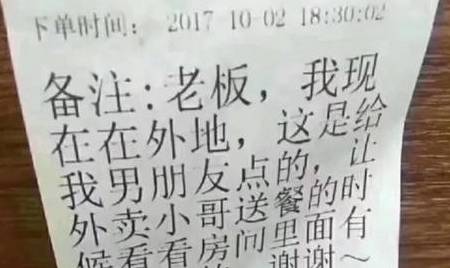 下单时间: 2017-10-02 18:30:02
备注:老板，我现
在在外地，这是给
我男朋友点的，让
外卖小哥送餐的时
候看看房间里面有
谢谢~